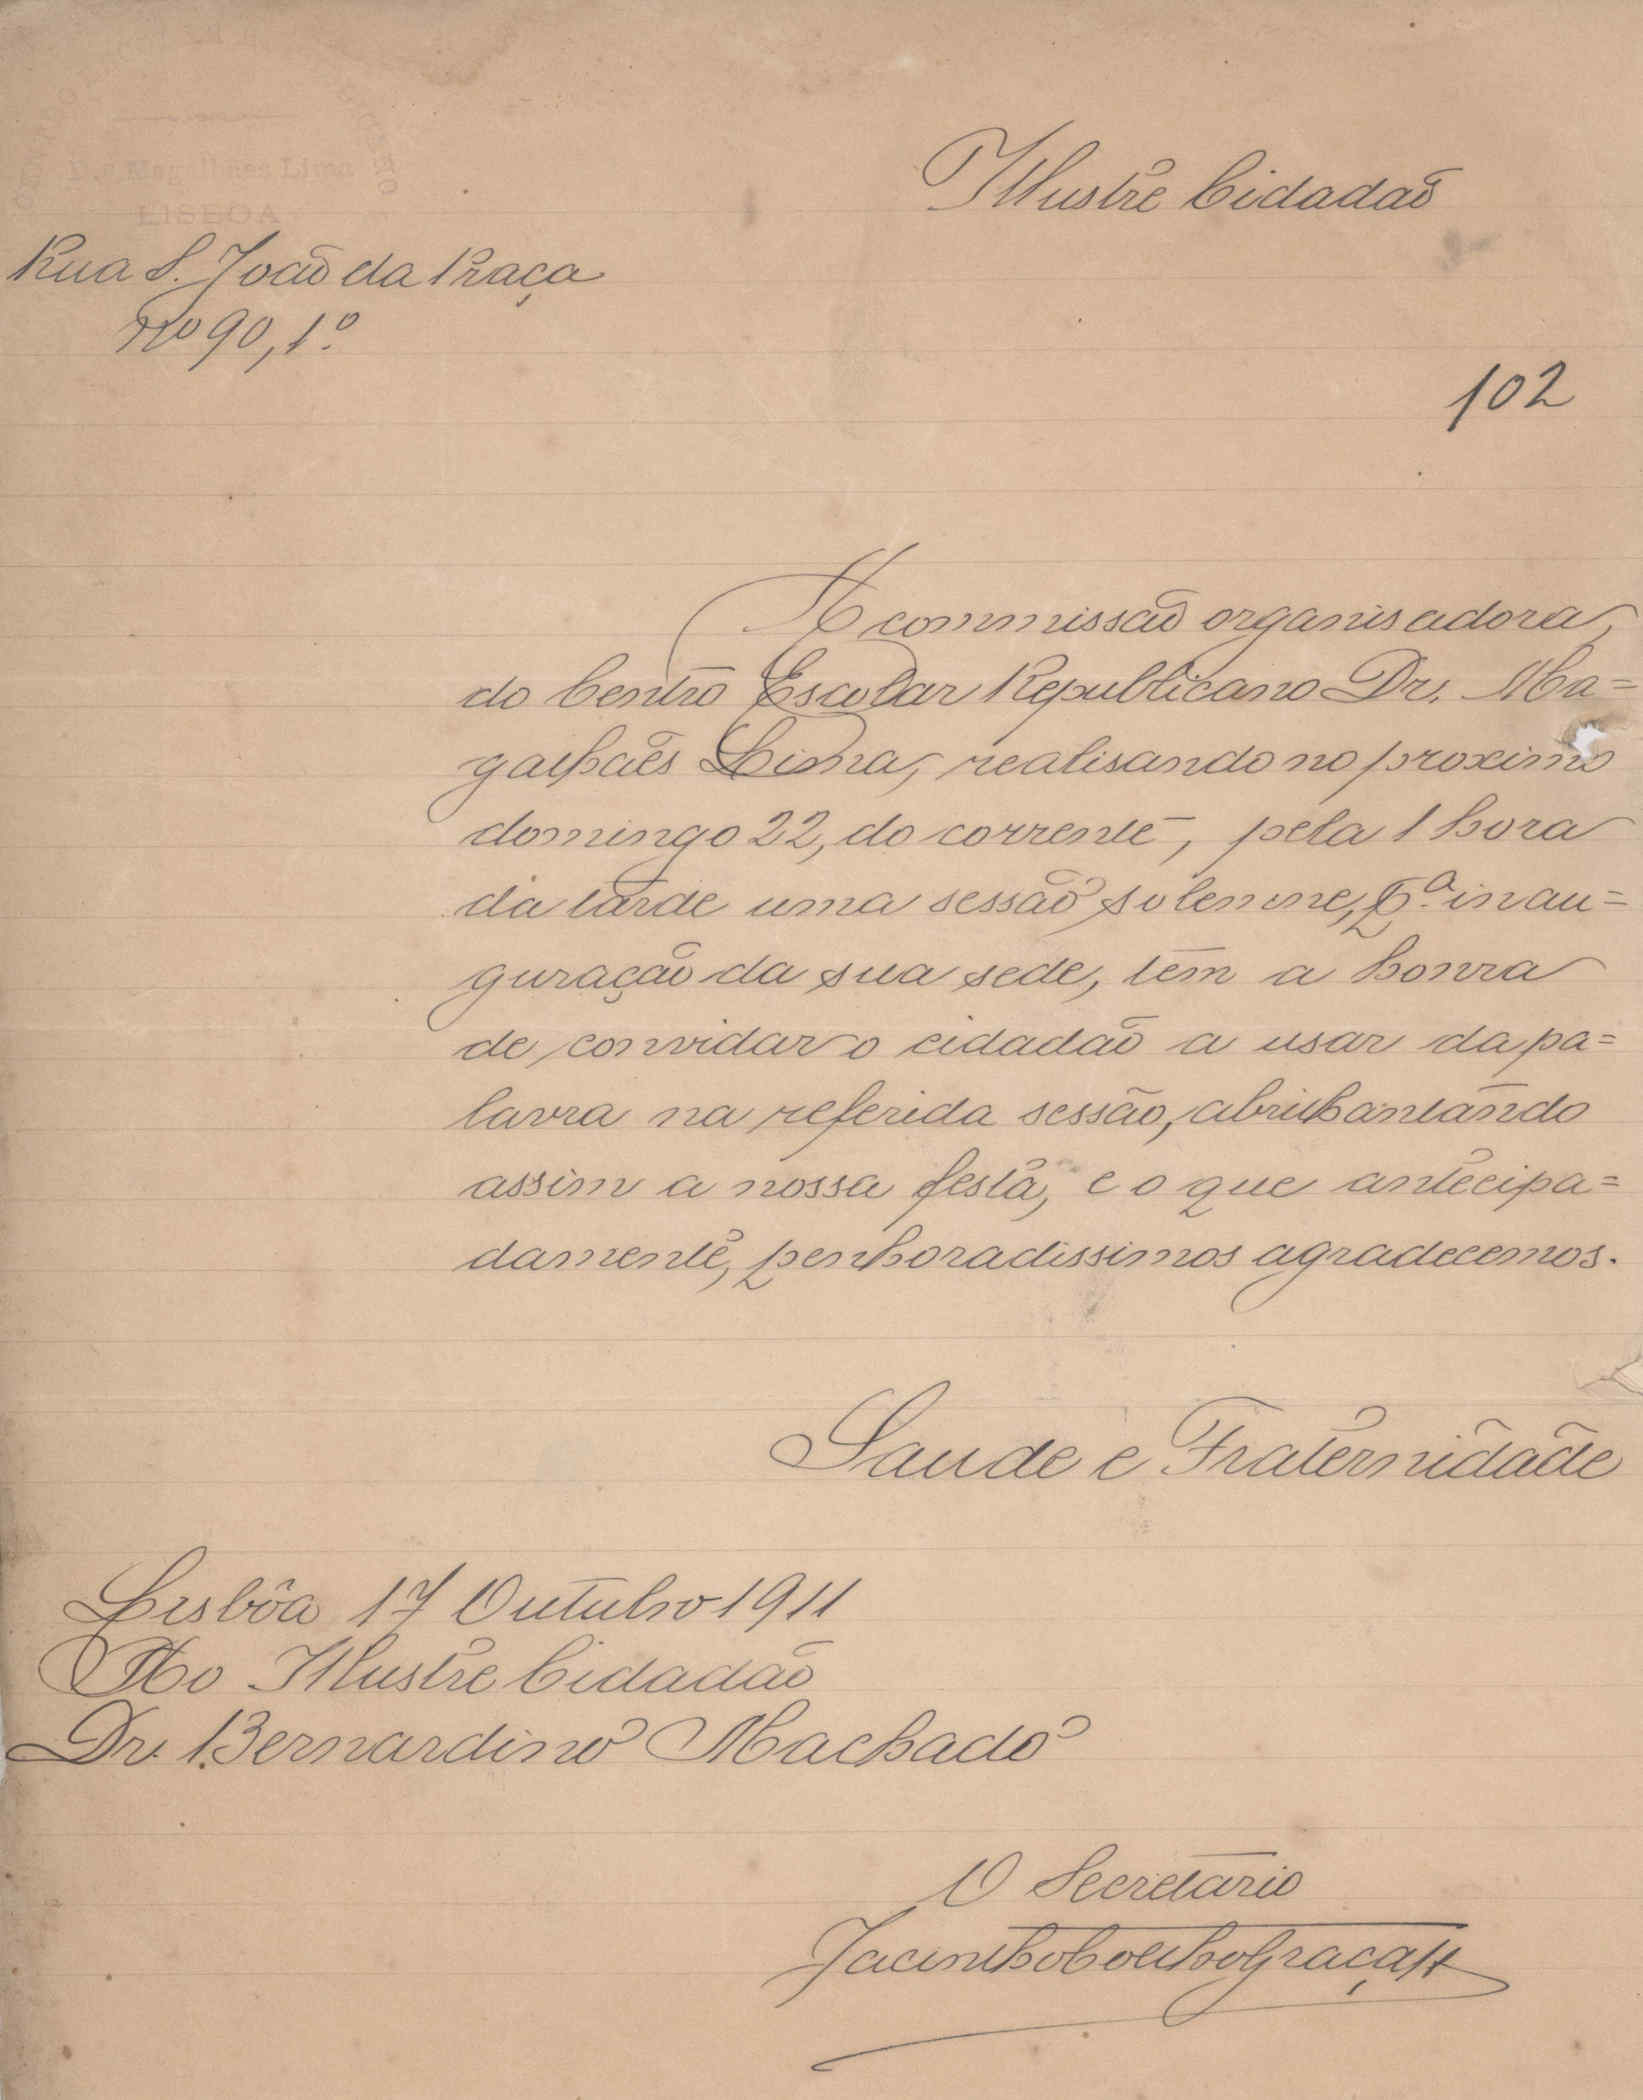 Dr. Magalhães Lima
LISBOA
Illustre Cidadão
Rua S. João da Praça
No 90, 1º.
102
A commissão organisadora,
do Centro Escolar Republicano Dr. Ma=
galhães Lima, realisando no proximo
domingo 22, do corrente, pela 1 hora
da tarde uma sessão solemne, pª. inau=
guração da sua sede, tem a honra
de convidar o cidadão a usar da pa=
lavra na referida sessão, abrilhantando
assim a nossa festa, e o que antecipa=
damente, penhoradissimos agradecemos.
Saude e Fraternidade
Lisbôa 17 Outubro 1911
Ao Illustre Cidadão
Dr. Bernardino Machado
O Secretario
Jacintho Coelho Graça